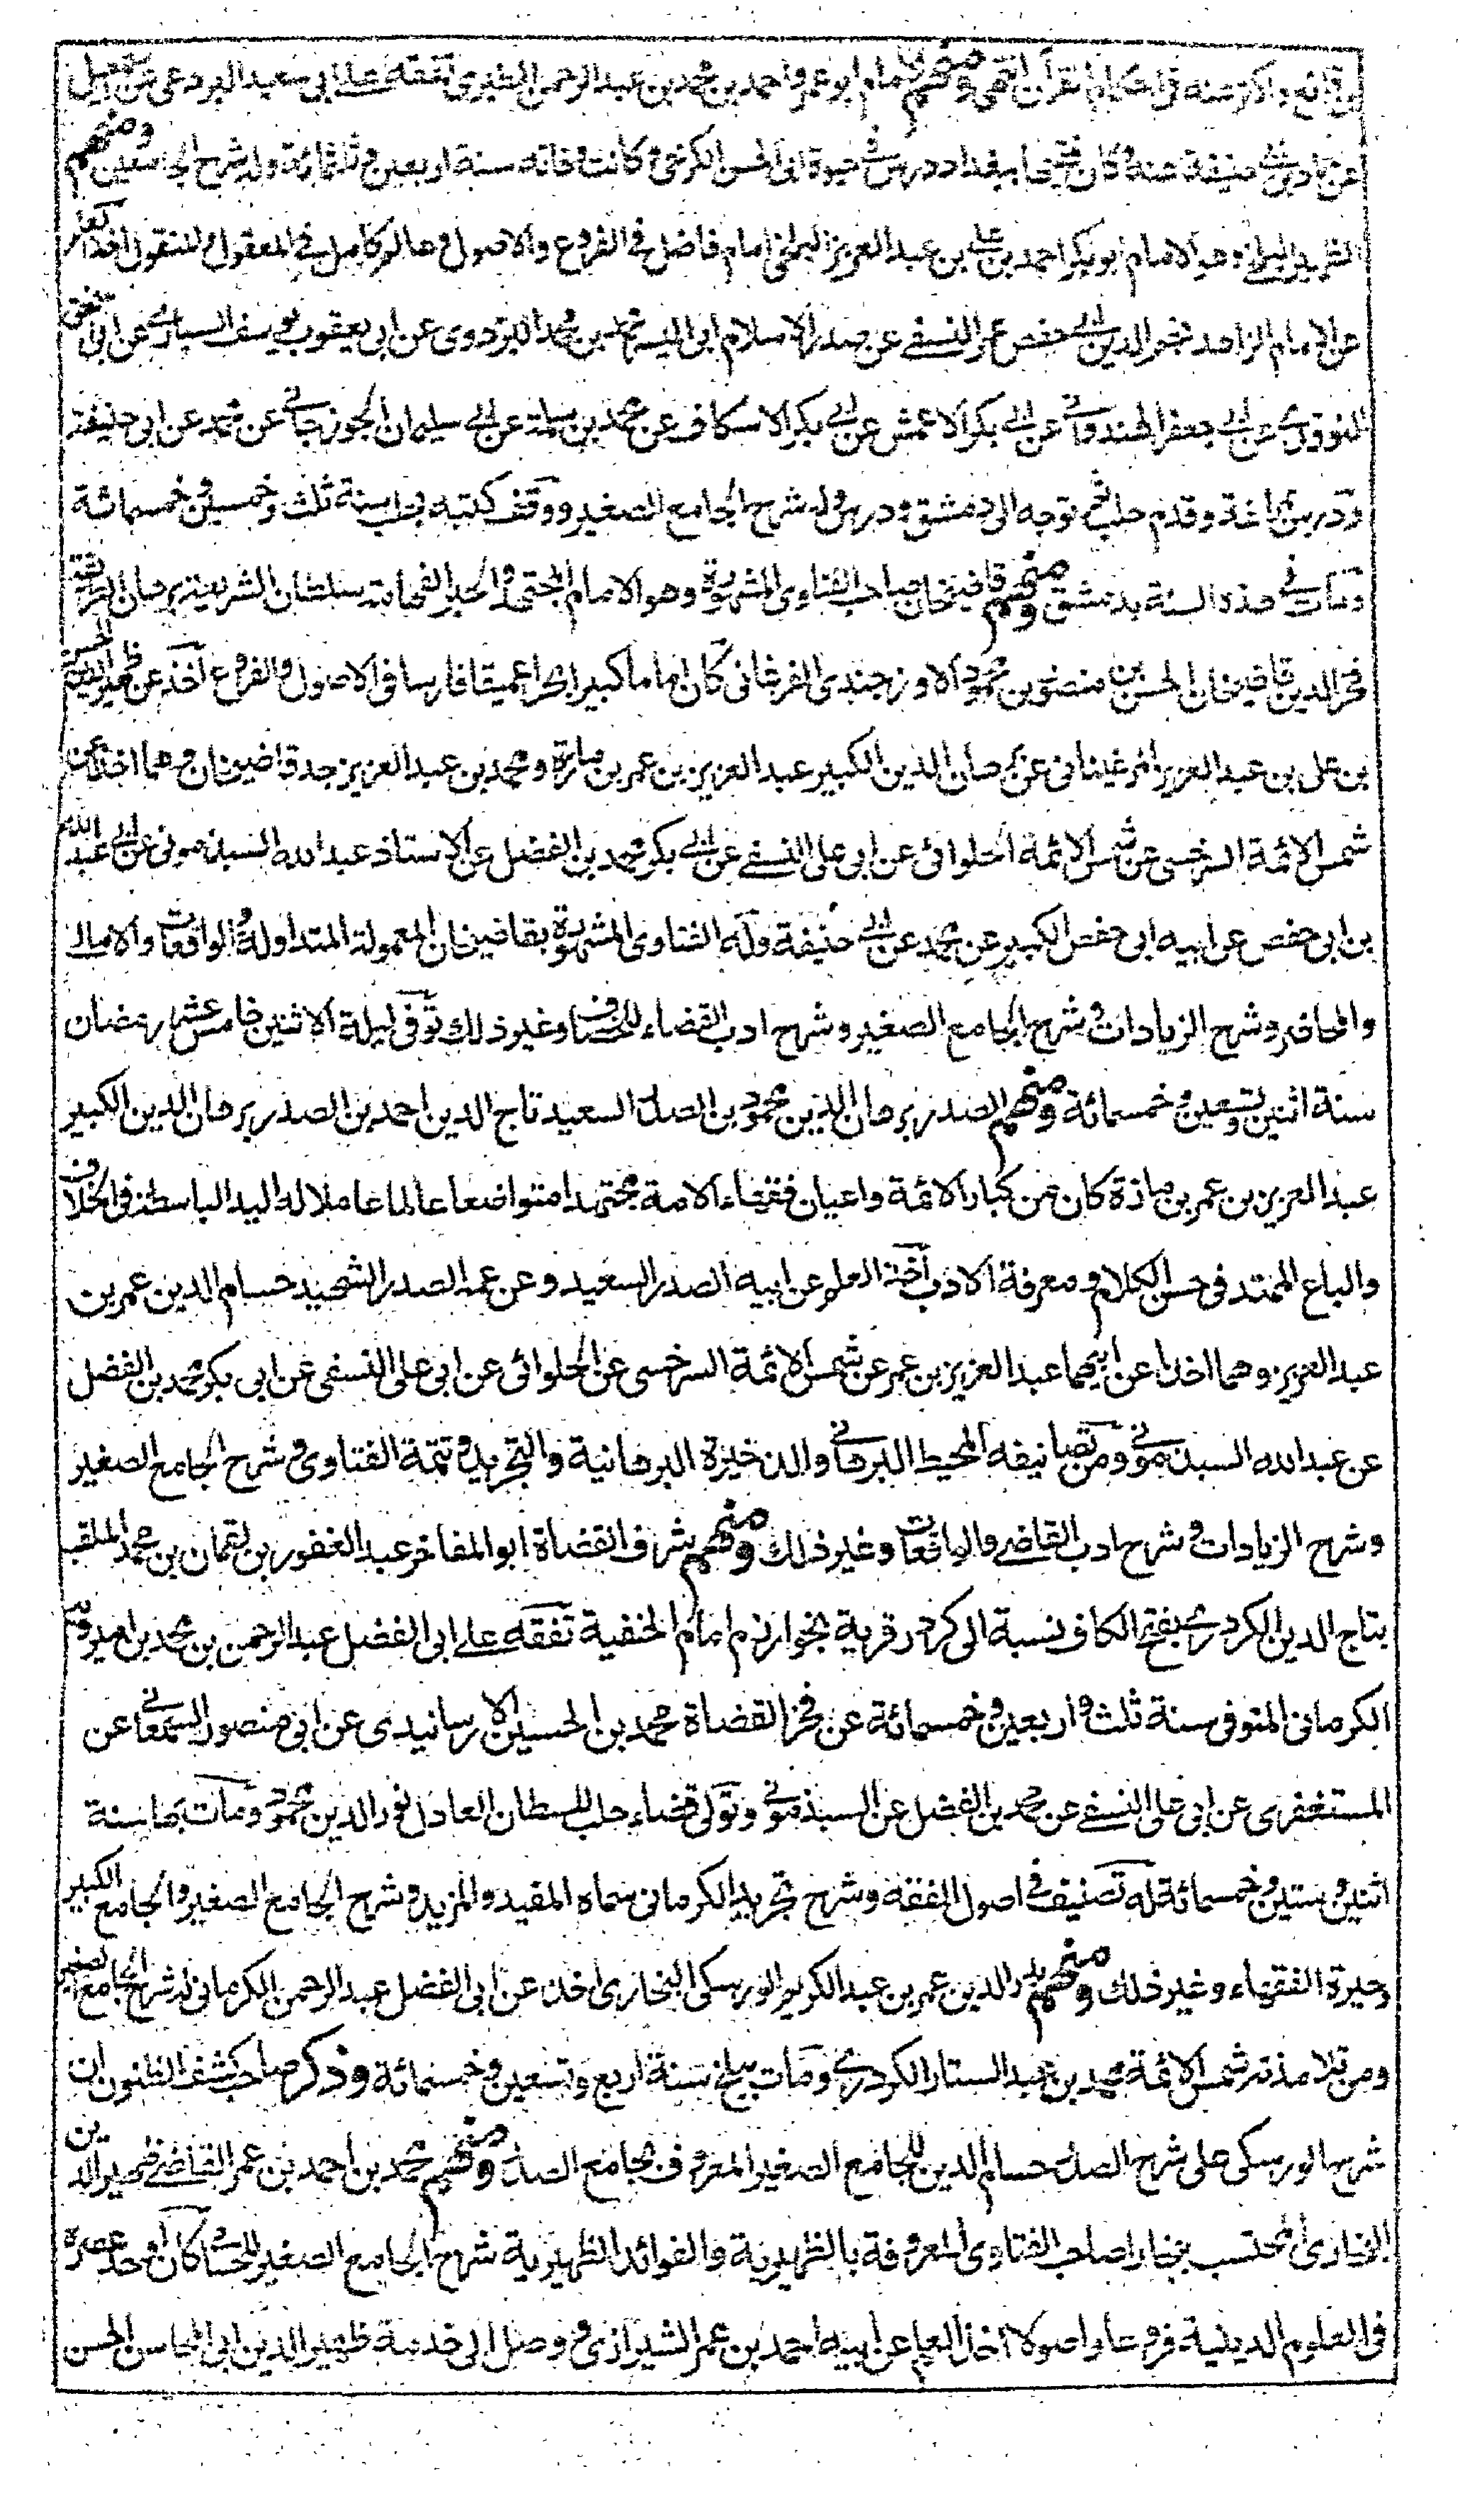 ومنهم الامام ابو عمرو احمد بن محمد بن عبد الرحمن الطبري تفقه على ابي سعيد البردعي عن اسمعيل
عن حماد بن ابي حنيفة عنه وكان فقيها ببغداد درس في حيوة ابي الحسن الكرخي وكانت وفاته سنة اربعين وثلثمائة وله شرح الجامعين ومنهم
الامام ابو بكر احمد بن علي بن عبد العزيز البلخي امام فاضل في الفروع والاصول وعالم كامل في المعقول والمنقول اخذ
عن الامام الزاهد نجم الدين ابي حفص عمر النسفي عن صدر الاسلام ابي اليسر محمد بن محمد البزدوي عن ابي يعقوب يوسف السياري عن ابي اسحق
النوقدي عن ابي جعفر الهندواني عن ابي بكر الاعمش عن ابي بكر الاسكاف عن محمد بن سلمة عن ابي سليمان الجوزجاني عن محمد عن ابي حنيفة
ودرس بمراغة وقدم حلب ثم توجه الى دمشق ودرس وله شرح الجامع الصغير ووقف كتبه بحلب سنة ثلث وخمسين وخمسمائة
ومات في هذه السنة بدمشق ومنهم قاضيخان صاحب الفتاوى المشهورة وهو الامام المجتهد والحبر الفهامة سلطان الشريعة برهان الطريقة
فخر الدين قاضيخان الحسن بن منصور بن محمود الاوزجندي الفرغاني كان اماما كبيرا بحرا عميقا فارسا في الاصول والفروع اخذ عن ظهير الدين الحسن
بن علي بن عبد العزيز المرغيناني عن برهان الدين الكبير عبد العزيز بن عمر بن مازة ومحمد بن عبد العزيز جد قاضيخان وهما اخذا عن
شمس الائمة السرخسي عن شمس الائمة الحلوائي عن ابي علي النسفي عن ابي بكر محمد بن الفضل عن الاستاذ عبد الله السبذموني عن ابي عبد الله
بن ابي حفص عن ابيه ابي حفص الكبير عن محمد عن ابي حنيفة وله الفتاوى المشهورة بقاضيخان المعمولة المتداولة والواقعات والامالي
والمحاضر وشرح الزيادات وشرح الجامع الصغير وشرح ادب القضاء للخصاف وغير ذلك توفي ليلة الاثنين خامس عشر رمضان
سنة اثنين وتسعين وخمسمائة ومنهم الصدر برهان الدين محمود بن الصدر السعيد تاج الدين احمد بن الصدر برهان الدين الكبير
عبد العزيز بن عمر بن مازة كان من كبار الائمة واعيان فقهاء الامة مجتهدا متواضعا عالما عاملا له اليد الباسطة في الخلاف
والباع الممتد في حسن الكلام ومعرفة الادب اخذ العلم عن ابيه الصدر السعيد وعن عمه الصدر الشهيد حسام الدين عمر بن
عبد العزيز وهما اخذا عن ابيهما عبد العزيز بن عمر عن شمس الائمة السرخسي عن الحلوائي عن ابي علي النسفي عن ابي بكر محمد بن الفضل
عن عبد الله السبذموني ومن تصانيفه المحيط البرهاني والذخيرة البرهانية والتجريد وتتمة الفتاوى وشرح الجامع الصغير
وشرح الزيادات وشرح ادب القاضي والواقعات وغير ذلك ومنهم شرف القضاة ابو المفاخر عبد الغفور بن لقمان بن محمد الملقب
بتاج الدين الكردري بفتح الكاف نسبة الى كردر قرية بخوارزم امام الحنفية تفقه على ابي الفضل عبد الرحمن بن محمد بن اميرويه
الكرماني المتوفى سنة ثلث واربعين وخمسمائة عن فخر القضاة محمد بن الحسين الارسانيدي عن ابي منصور السمعاني عن
المستغفري عن ابي علي النسفي عن محمد بن الفضل عن السبذموني وتولى قضاء حلب للسطان العادل نور الدين محمود ومات بها سنة
اثنين وستين وخمسمائة له تصنيف في اصول الفقه وشرح تجريد الكرماني سماه المفيد والمزيد وشرح الجامع الصغير والجامع الكبير
وحيرة الفقهاء وغير ذلك ومنهم بدر الدين عمر بن عبد الكريم الورسكي البخاري اخذ عن ابي الفضل عبد الرحمن الكرماني له شرح الجامع الصغير
ومن تلامذته شمس الائمة محمد بن عبد الستار الكردري ومات ببلخ سنة اربع وتسعين وخمسمائة وذكر صاحب كشف الظنون ان
شرح الورسكي على شرح الصدر حسام الدين للجامع الصغير المعروف بجامع الصدر ومنهم محمد بن احمد بن عمر القاضي ظهير الدين
البخاري المحتسب ببخارا صاحب الفتاوى المعروفة بالظهيرية والفوائد الظهيرية شرح الجامع الصغير للحسامي كان اوحد عصره
في العلوم الدينية فروعا واصولا اخذ العلم عن ابيه احمد بن عمر الشيرازي ووصل الى خدمة ظهير الدين ابي المحاسن الحسن